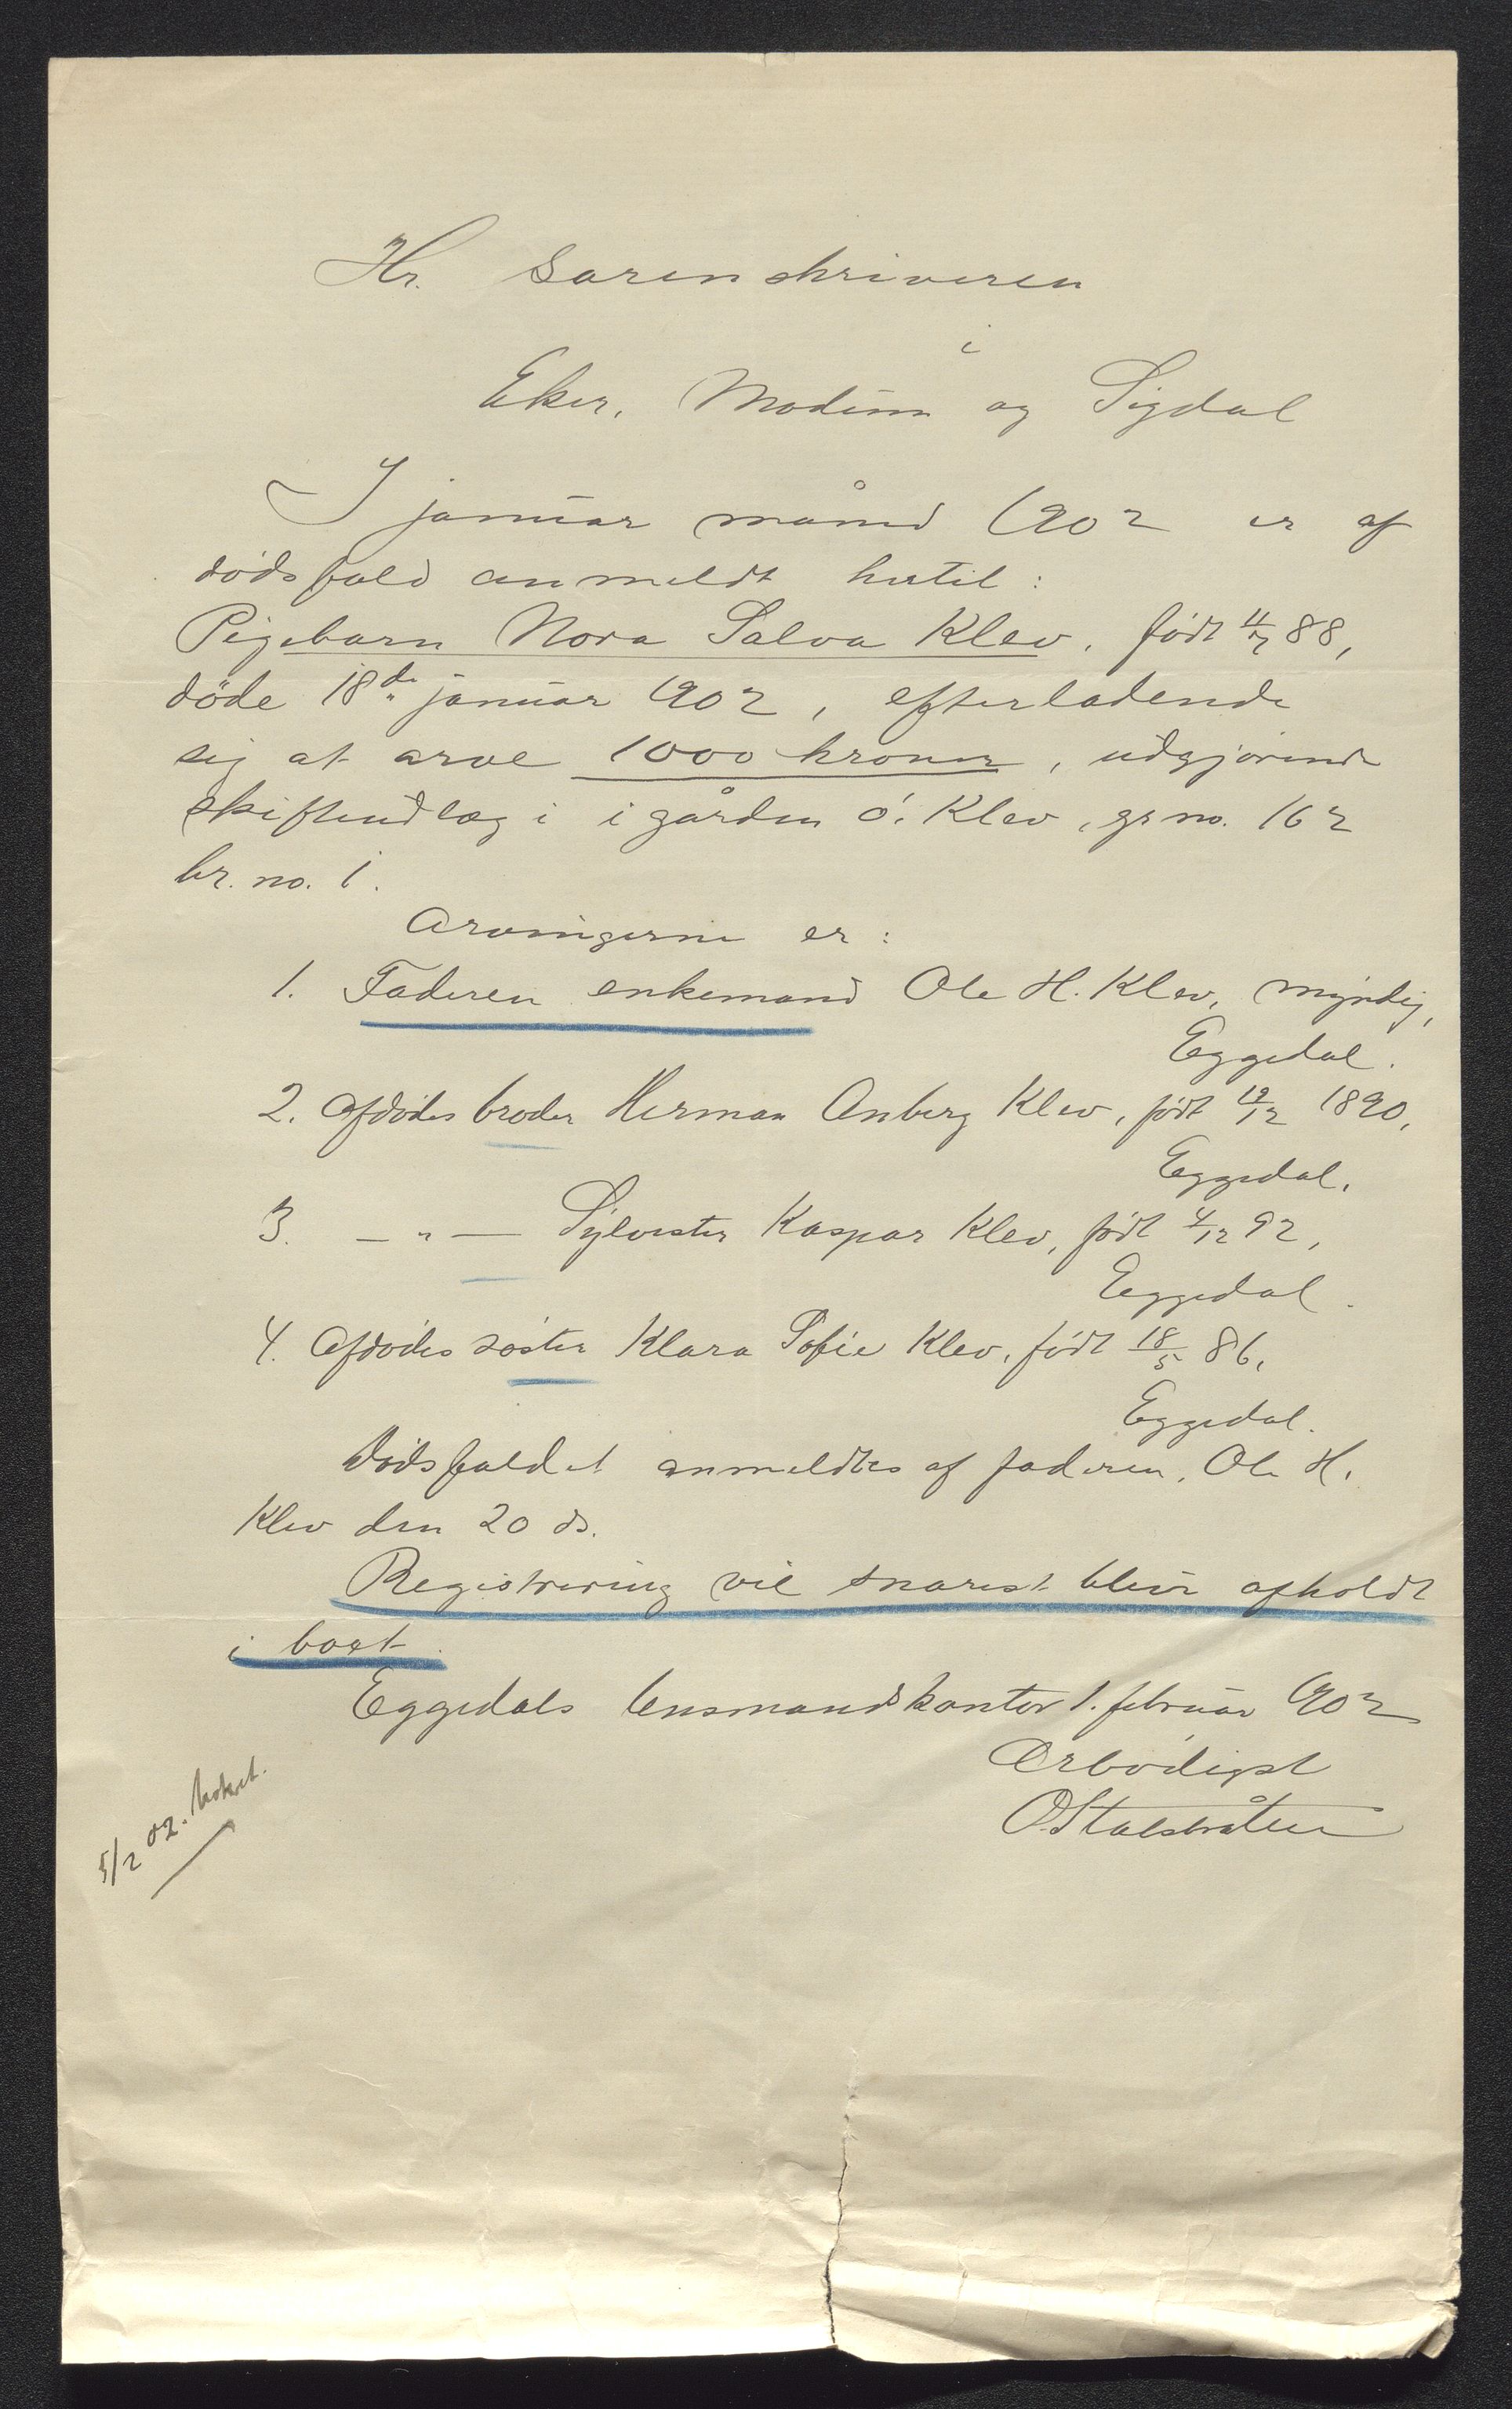 Hr. Sorenskriveren
i
Eker, Modum og Sigdal
I januar måned 1902 er af
dödsfald anmeldt hertil:
Pigebarn Nora Salva Klev, født 11/7 88,
döde 18de januar 1902, efterladende
sig at arve 1000 kroner, udgjørende
skifteudlæg i i gården ö. Klev, gr no. 162
br. no. 1.
Arvingerne er:
1. Faderen enkemand Ole H. Klev, myndig,
Eggedal.
2. Afdødes broder Herman Anberg Klev, født 19/12 1890,
Eggedal.
3. — " — Sylvester Kaspar Klev, født 4/12 92,
Eggedal.
4. Afdødes søster Klara Sofie Klev, født 18/5 86,
Eggedal.
Dødsfaldet anmeldtes af faderen, Ole H.
Klev den 20 ds.
Registrering vil snarest blive afholdt
i boet.
Eggedals lensmandskontor 1. februar 1902
Ærbødigst
O. Stalsbråten
5/2 02. Noteret.